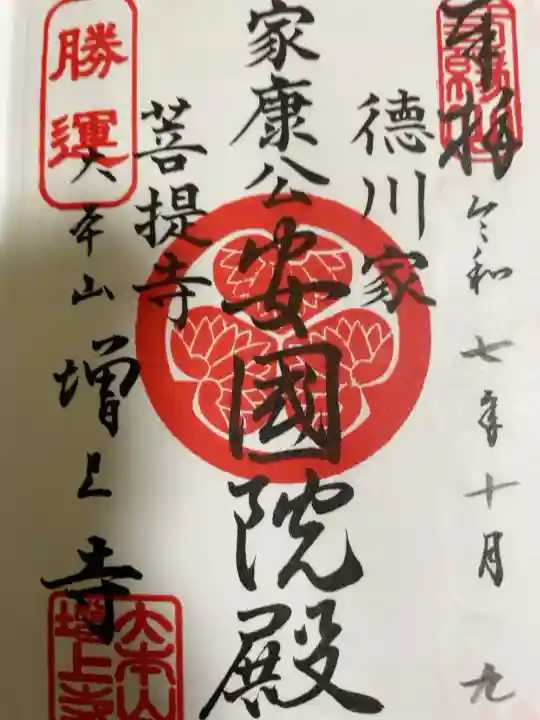 奉拝
令和七年十月九
徳川家
家康公
安國院殿
菩提寺
勝運
大本山 増上寺
大本山
増上寺